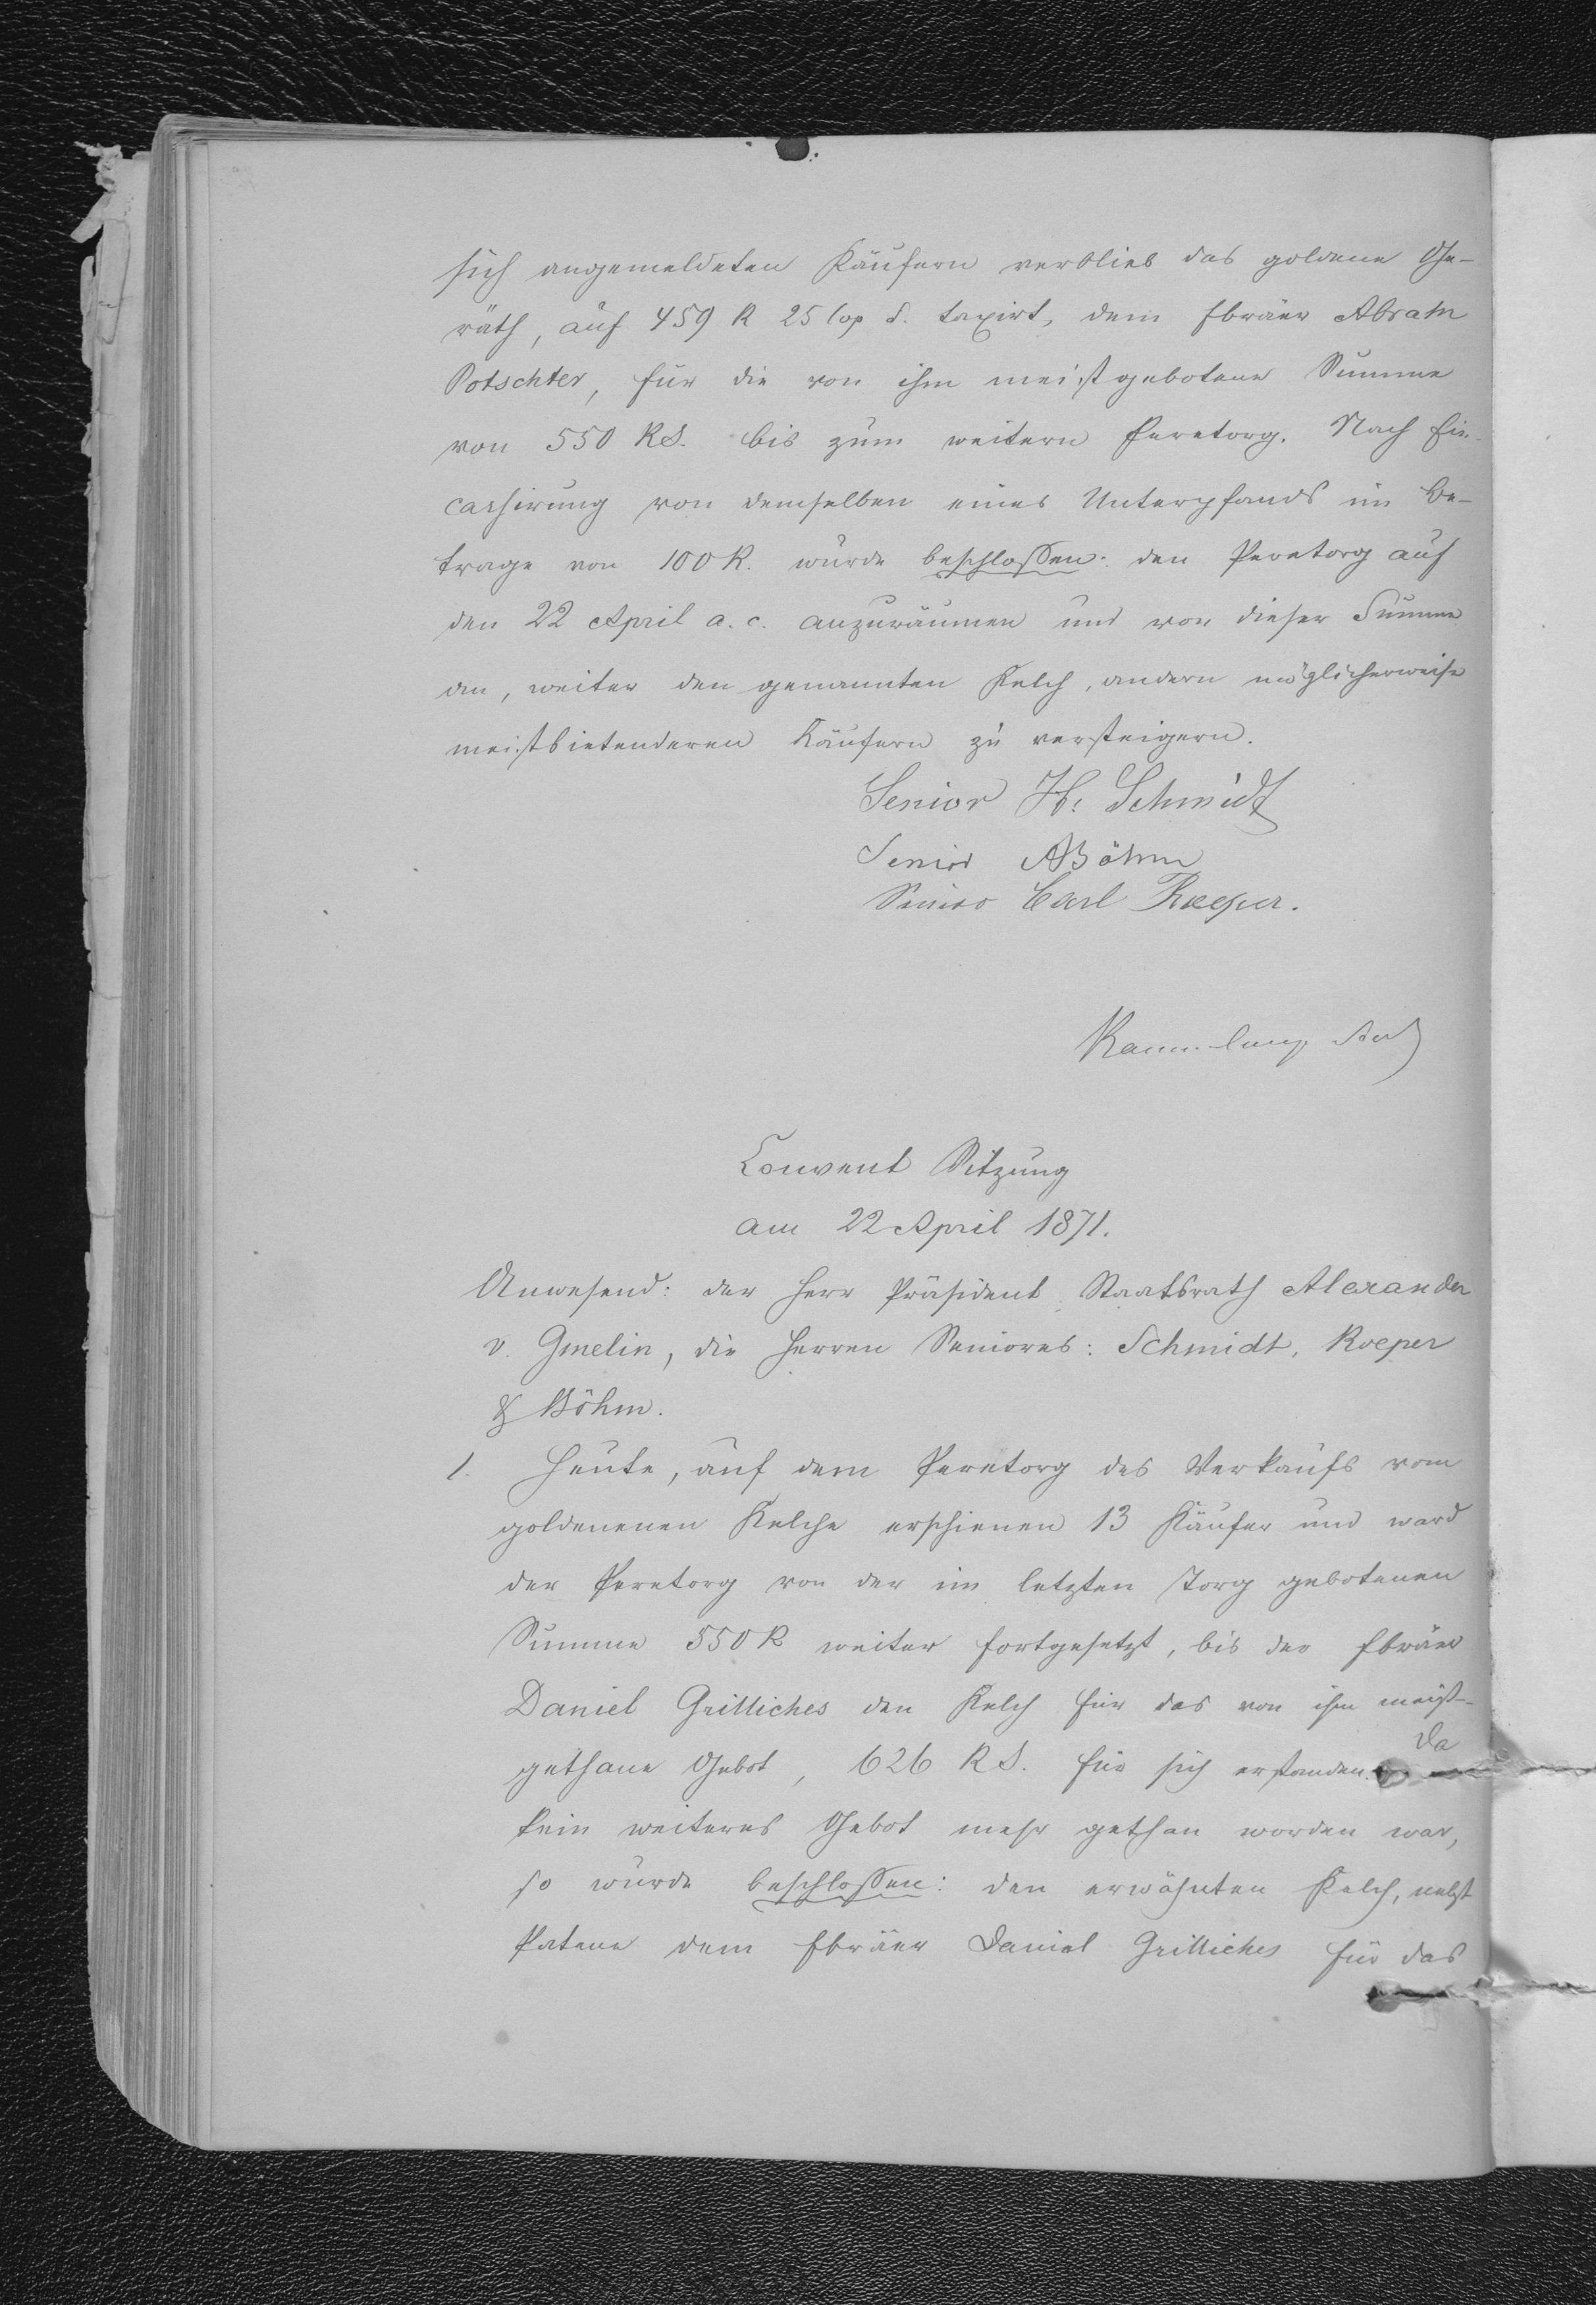 sich angemeldeten Käufern verblieb das goldene Ge-
räth, auf 459 R 25 Cop S. taxirt, dem Ebräer Abram
Potschter, für die von ihm meistgebotene Summe
von 550 RS. bis zum weitern Peretorg. Nach Ein-
cassirung von demselben eines Unterpfands im Be-
trage von 100 R. wurde beschlossen: den Peretorg auf
den 22 April a. c. anzuräumen und von dieser Summe
an, weiter den genannten Kelch, andern möglicherweise
meistbietenderen Käufern zu versteigern.
Senior H. Schmidt
Senior ABöhm
Senior Carl Roeper.
Convent Sitzung
am 22 April 1871.
Anwesend: der Herr Präsident Staatsrath Alexander
v. Gmelin, die Herren Seniores: Schmidt, Roeper
& Böhm.
1. Heute, auf dem Peretorg des Verkaufs vom
goldenenen Kelche erschienen 13 Käufer und ward
der Peretorg von der im letzten Torg gebotenen
Summe 550 R weiter fortgesetzt, bis der Ebräer
Daniel Grilliches den Kelch für das von ihm meist-
gethane Gebot, 626 RS. für sich erstanden. Da
kein weiteres Gebot mehr gethan worden war,
so wurde beschlossen: den erwähnten Kelch, nebst
Patene dem Ebräer Daniel Grilliches für das